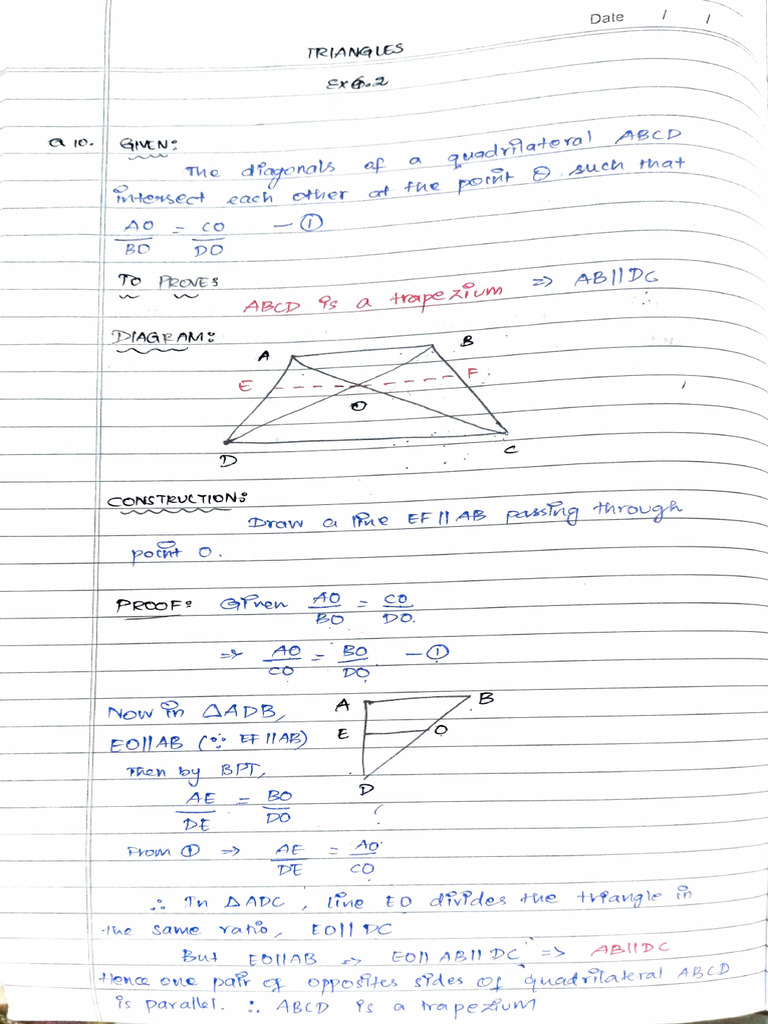 Date / /
TRIANGLES
Ex 6.2
Q 10. GIVEN:
The diagonals of a quadrilateral ABCD
intersect each other at the point O such that
AO/BO = CO/DO — ①
TO PROVE:
ABCD is a trapezium => AB||DC
DIAGRAM:
A B
E F
O
D C
CONSTRUCTION:
Draw a line EF||AB passing through
point O.
PROOF: Given AO/BO = CO/DO.
=> AO/CO = BO/DO — ①
Now in △ADB, A B
EO||AB (∵ EF||AB) E O
Then by BPT, D
AE/DE = BO/DO
From ① => AE/DE = AO/CO
∴ In △ADC, line EO divides the triangle in
the same ratio, EO||DC
But EO||AB => EO||AB||DC => AB||DC
Hence one pair of opposites sides of quadrilateral ABCD
is parallel. ∴ ABCD is a trapezium